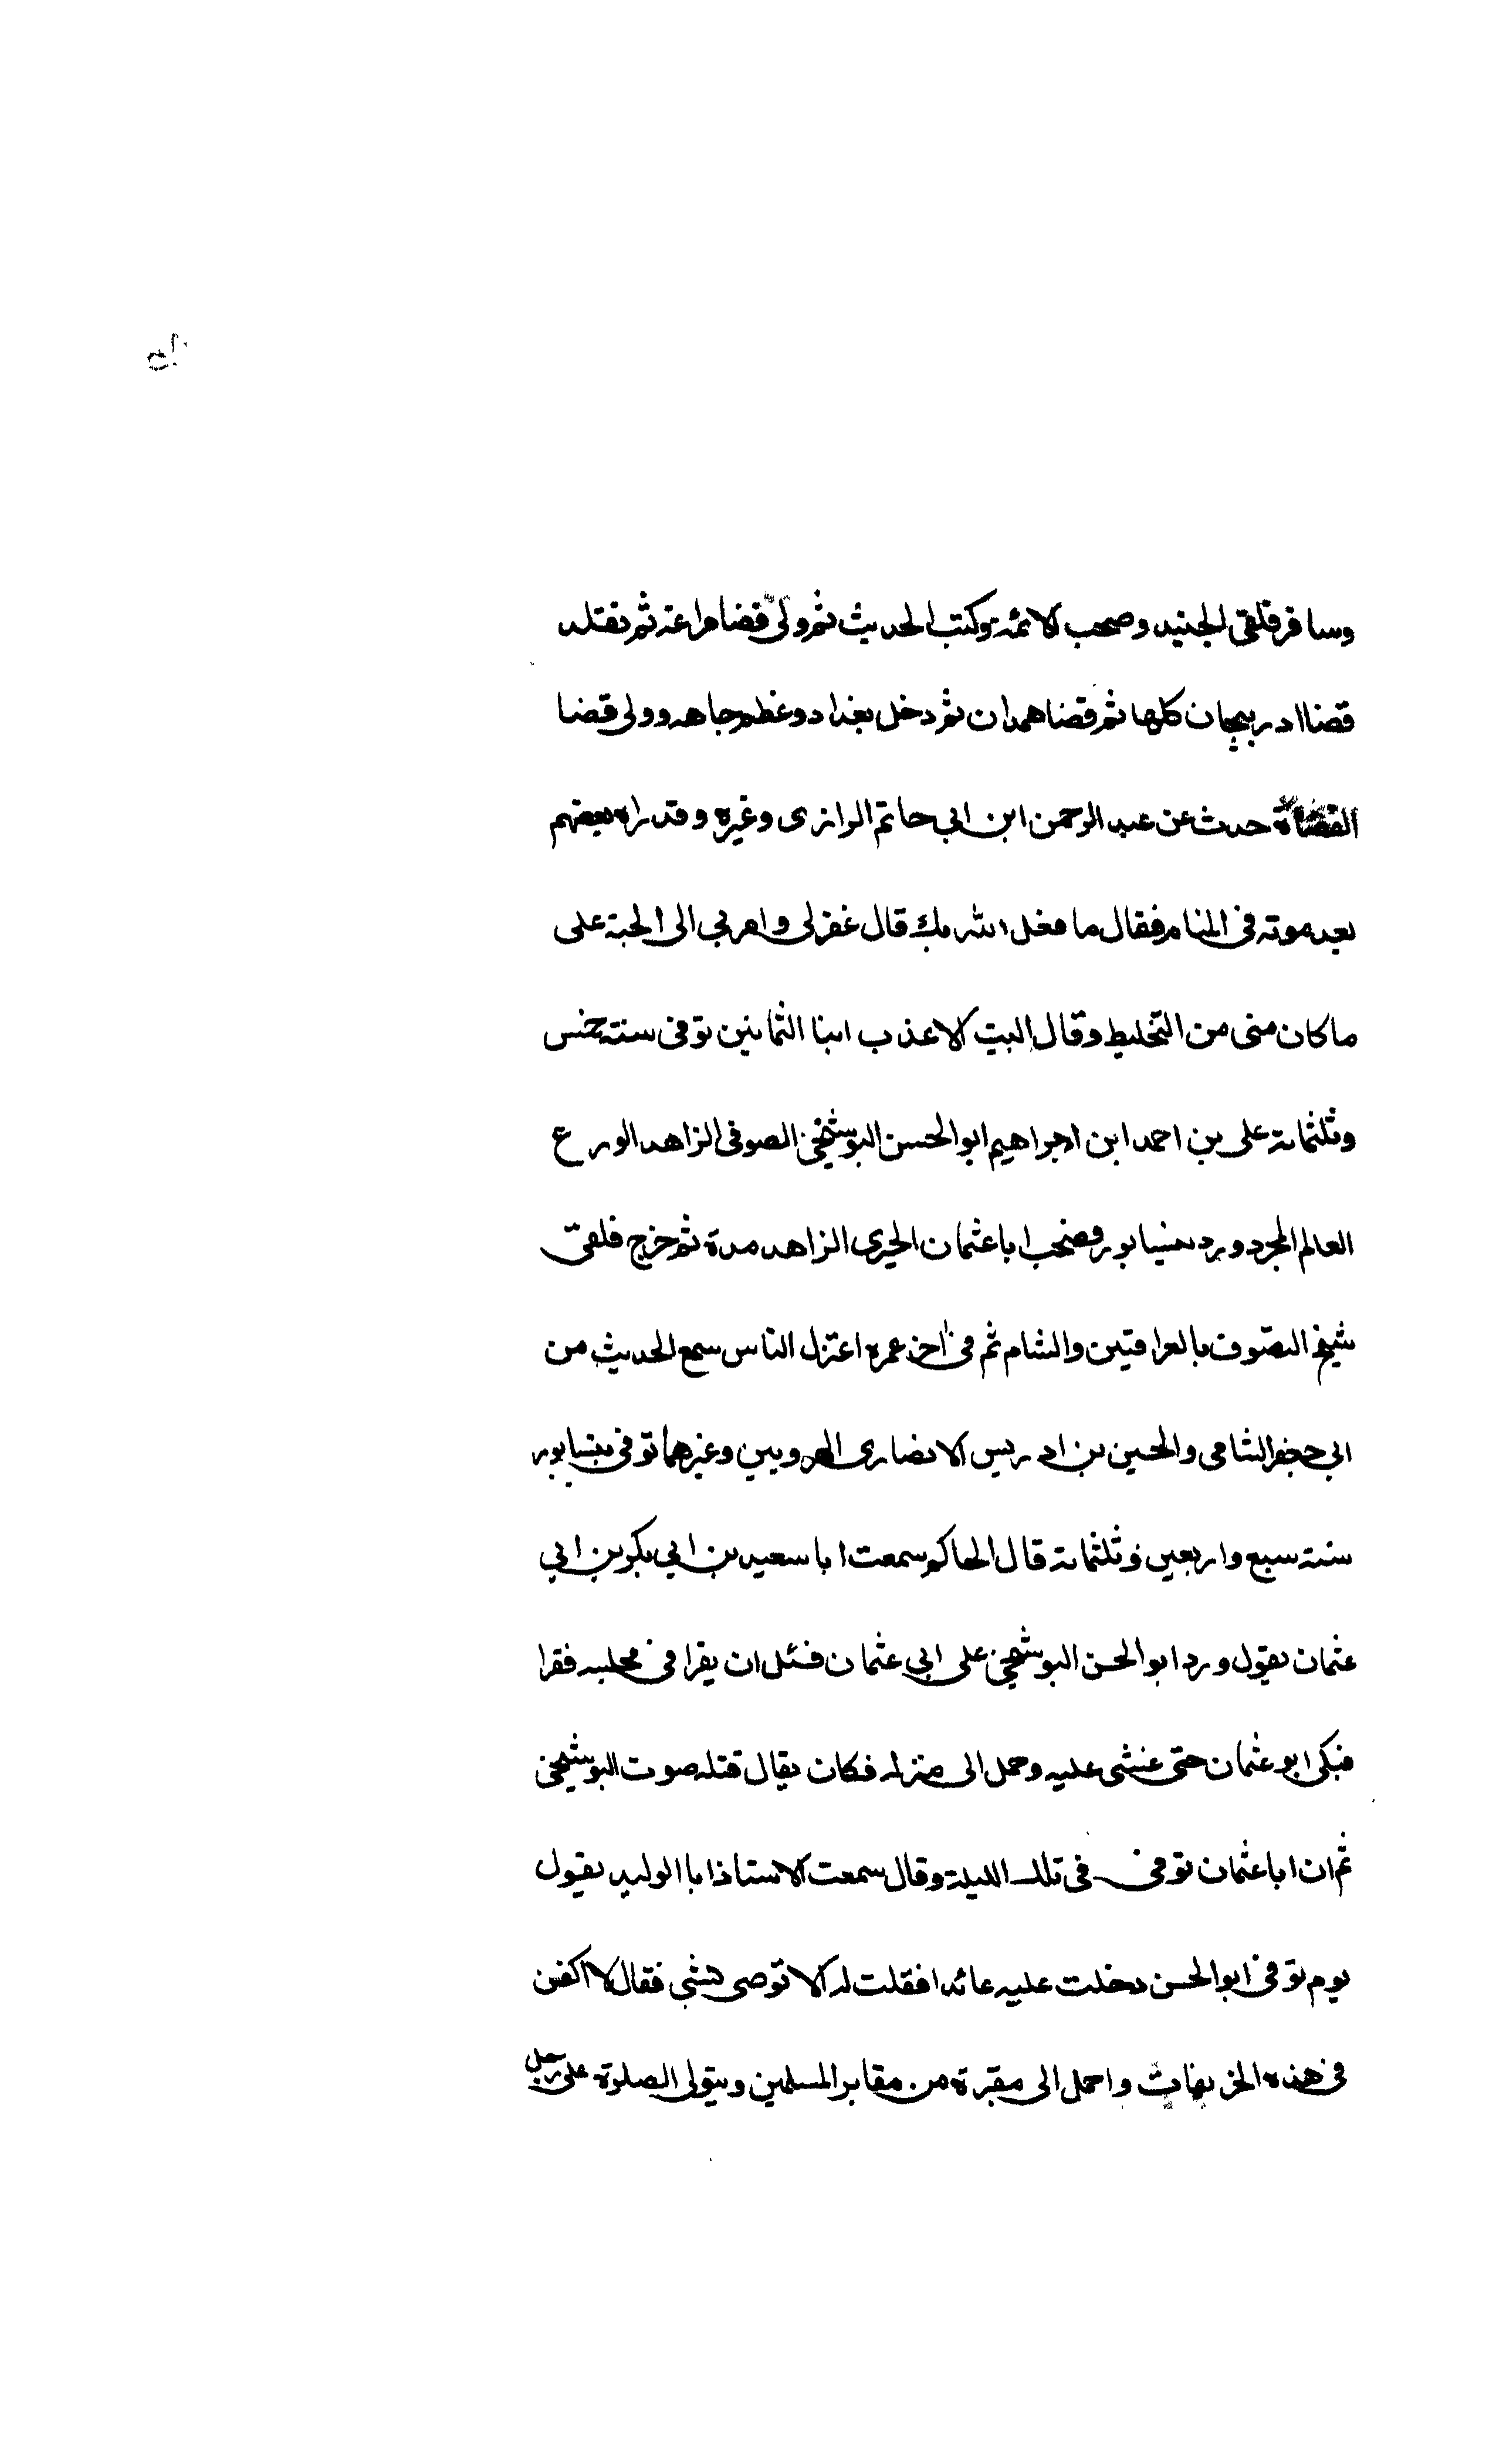 وسافر فلقى الجنيد وصحب الائمة وكتب الحديث ثم ولى قضا مراغة ثم تقلد
قضا ادربيجان كلها ثم قضا همدان ثم دخل بغداد وعظم جاهه وولى قضا
القضاة حدث عن عبد الرحمن ابن ابي حاتم الرازى وغيره وقد راه بعضهم
بعد موته في المنام فقال ما فعل الله بك قال غفر لى وامر بي الى الجنة على
ما كان منى من التخليط وقال اليت لا اعذب ابنا الثمانين توفى سنة خمس
وثلثمائة على بن احمد ابن ابراهيم ابو الحسن البوشنجي الصوفى الزاهد الورع
العالم المجرد ورد نيسابور فصحب ابا عثمان الحيرى الزاهد مدة ثم خرج فلقى
شيخ التصوف بالعراقين والشام ثم فى اخر عمره اعتزل الناس سمع الحديث من
ابي جعفر الشامى والحسين بن ادريس الانصارى الهرويين وغيرهما توفى بنيسابور
سنة سبع واربعين وثلثمائة قال الحاكم سمعت ابا سعيد بن ابي بكر بن ابي
عثمان يقول ورد ابو الحسن البوشنجي على ابي عثمان فسئل ان يقرا فى مجلسه فقرا
فبكى ابو عثمان حتى غشى عليه وحمل الى منزله فكان يقال قتله صوت البوشنجي
ثم ان ابا عثمان توفى فى تلك الليلة وقال سمعت الاستاذ ابا الوليد يقول
يوم توفى ابو الحسن دخلت عليه عائدا فقلت له الا توصى بشي فقال لا اكفن
فى هذه الخريقات واحمل الى مقبرة من مقابر المسلمين ويتولى الصلوة على رجل